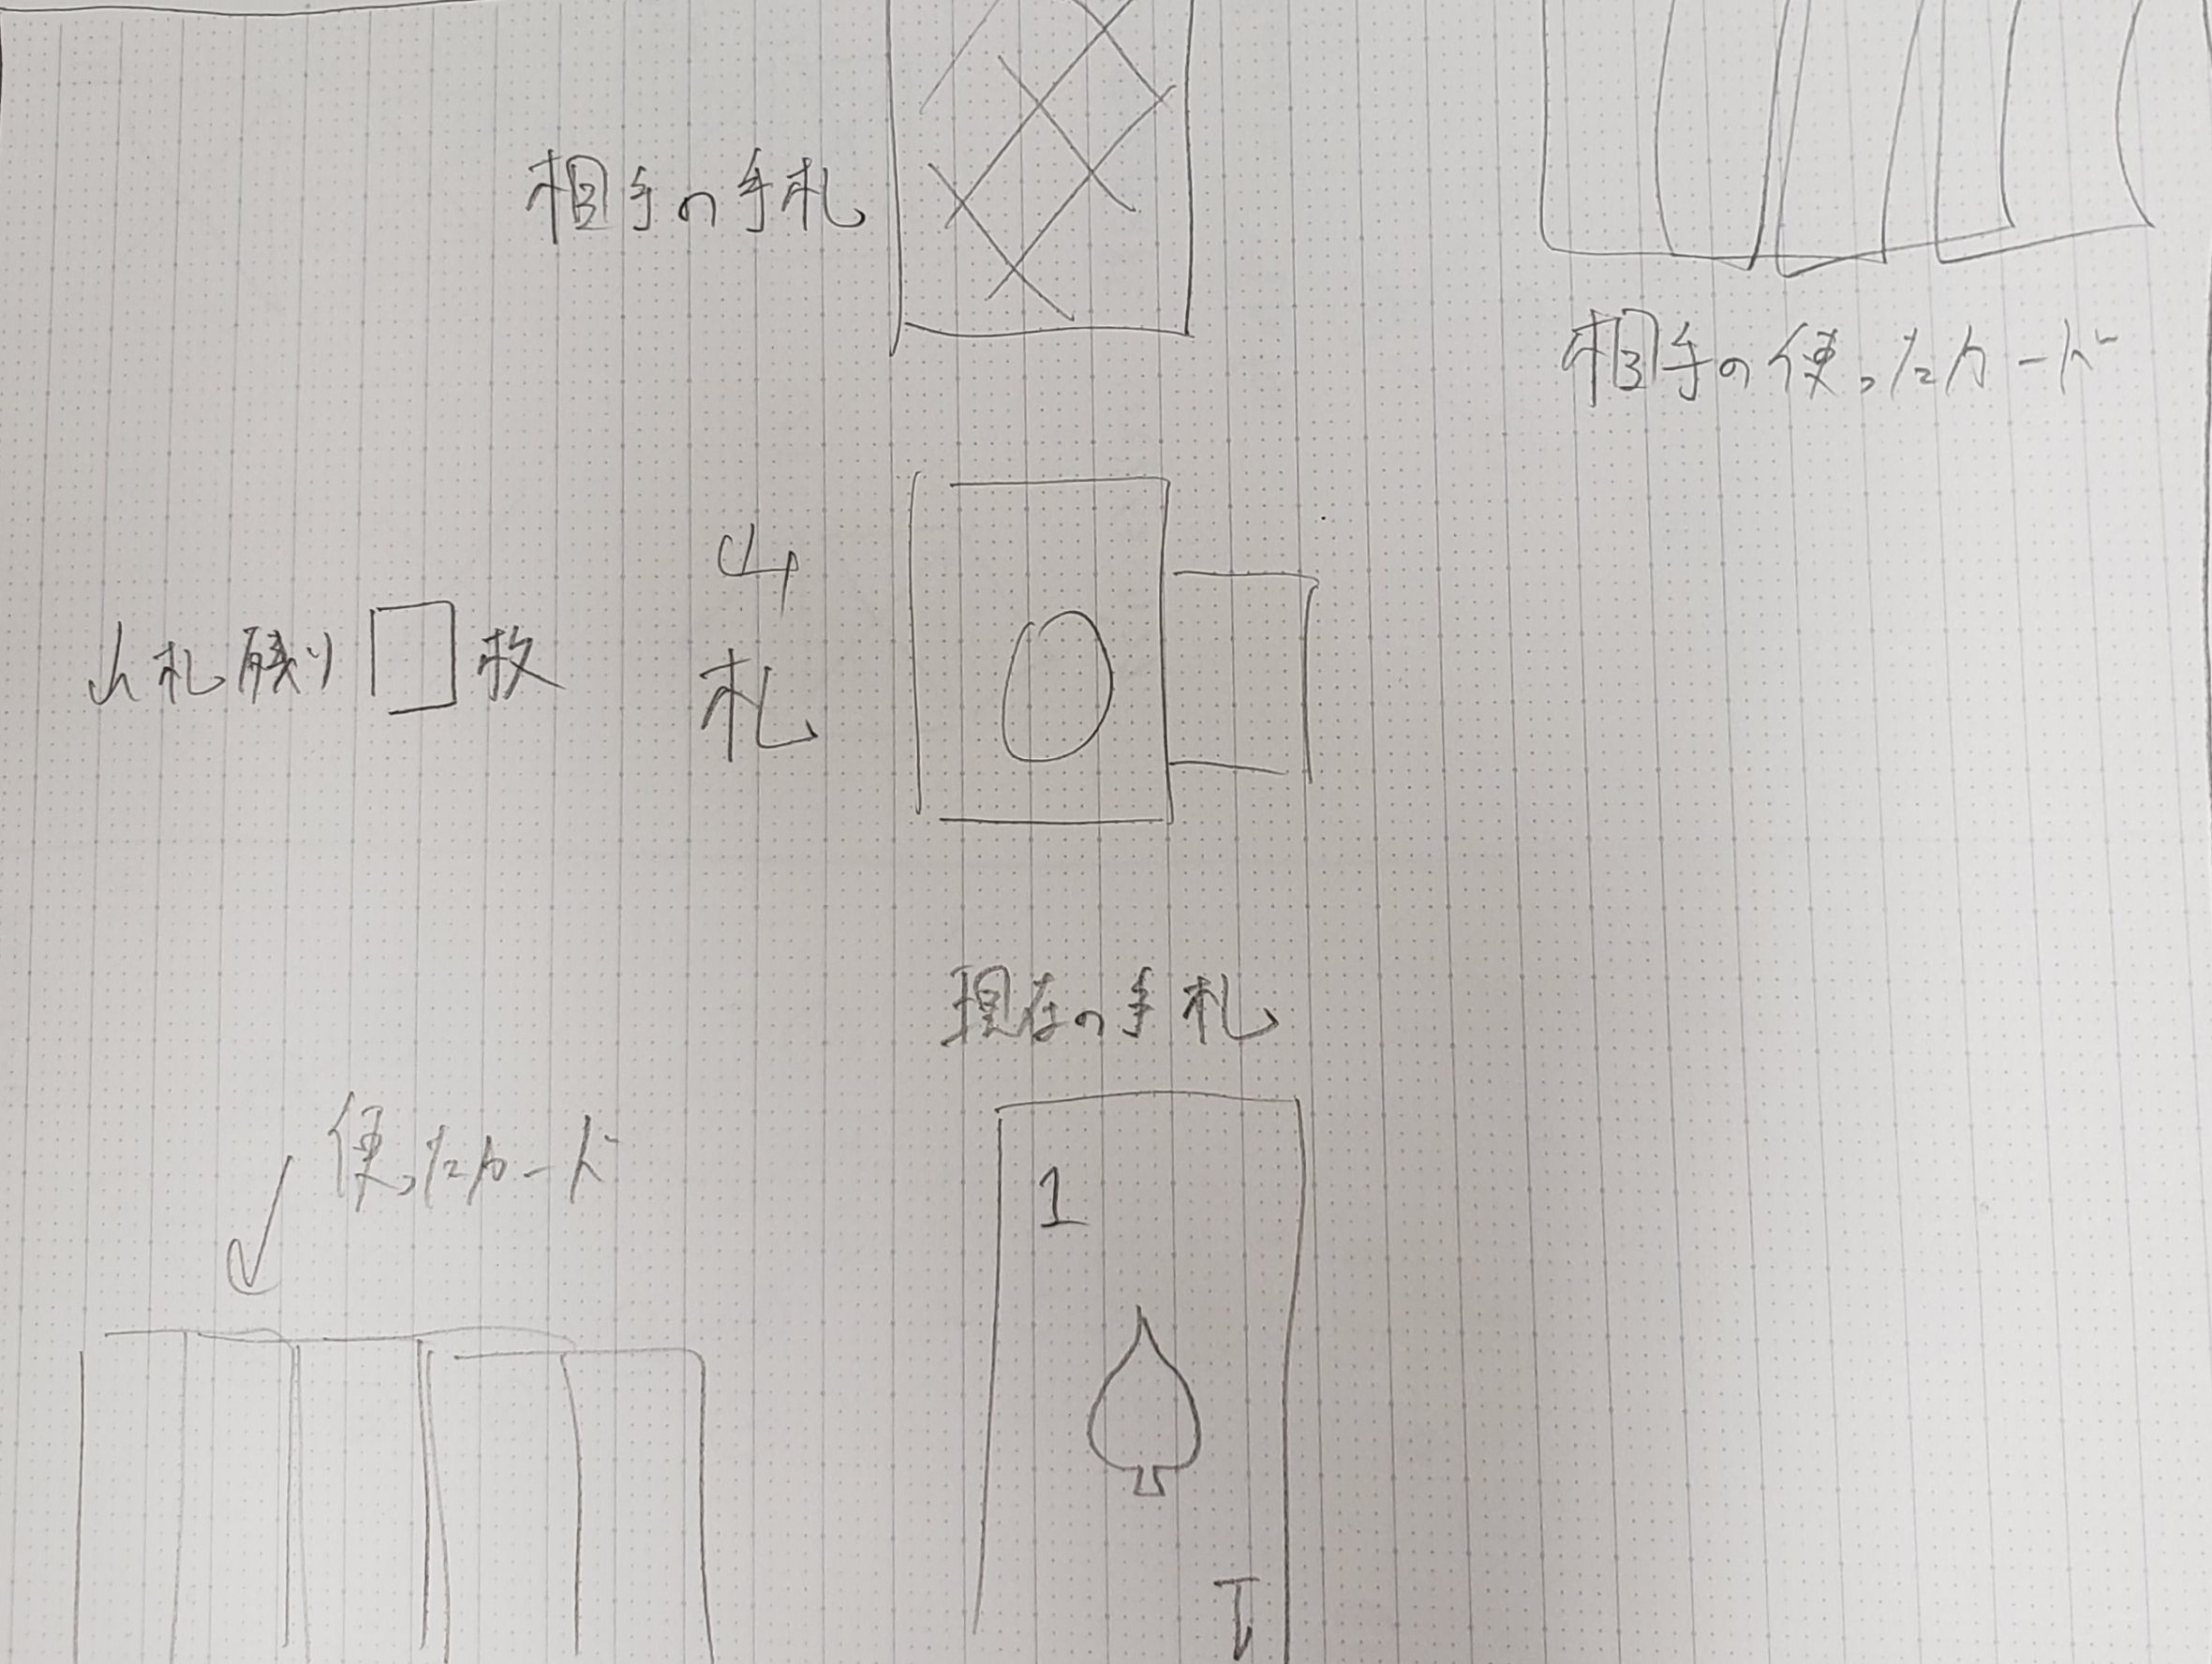 相手の手札
相手の使ったカード
山札
山札残り 枚
現在の手札
使ったカード
1
1